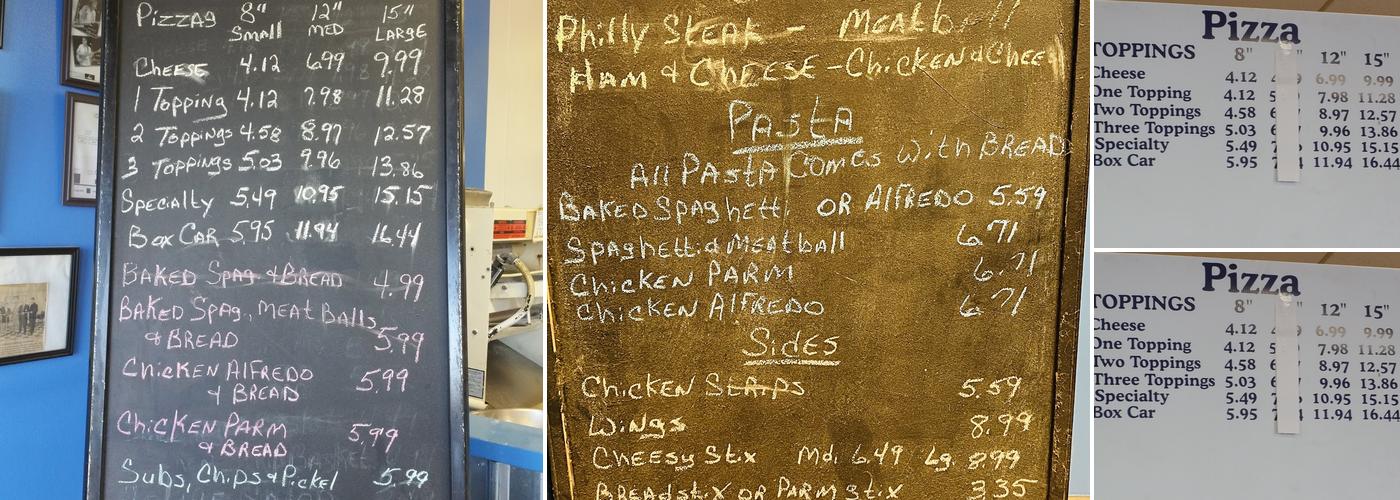 Pizzas 8" 12" 15"
Small Med Large
Cheese 4.12 6.99 9.99
1 Topping 4.12 7.98 11.28
2 Toppings 4.58 8.97 12.57
3 Toppings 5.03 9.96 13.86
Specialty 5.49 10.95 15.15
Box Car 5.95 11.94 16.44
Baked Spag & Bread 4.99
Baked Spag., Meat Balls
& Bread 5.99
Chicken Alfredo
& Bread 5.99
Chicken Parm
& Bread 5.99
Subs, Chips & Pickel 5.99
Philly Steak - Meatball
Ham & Cheese - Chicken & Chee
Pasta
All Pasta Comes with Bread
Baked Spaghetti or Alfredo 5.59
Spaghetti & Meatball 6.71
Chicken Parm 6.71
Chicken Alfredo 6.71
Sides
Chicken Strips 5.59
Wings 8.99
Cheesy Stix Md. 6.49 Lg. 8.99
Breadstix or Parm Stix 3.35
Pizza
TOPPINGS 8" 12" 15"
Cheese 4.12 6.99 9.99
One Topping 4.12 7.98 11.28
Two Toppings 4.58 8.97 12.57
Three Toppings 5.03 9.96 13.86
Specialty 5.49 10.95 15.15
Box Car 5.95 11.94 16.44
Pizza
TOPPINGS 8" 12" 15"
Cheese 4.12 6.99 9.99
One Topping 4.12 7.98 11.28
Two Toppings 4.58 8.97 12.57
Three Toppings 5.03 9.96 13.86
Specialty 5.49 10.95 15.15
Box Car 5.95 11.94 16.44